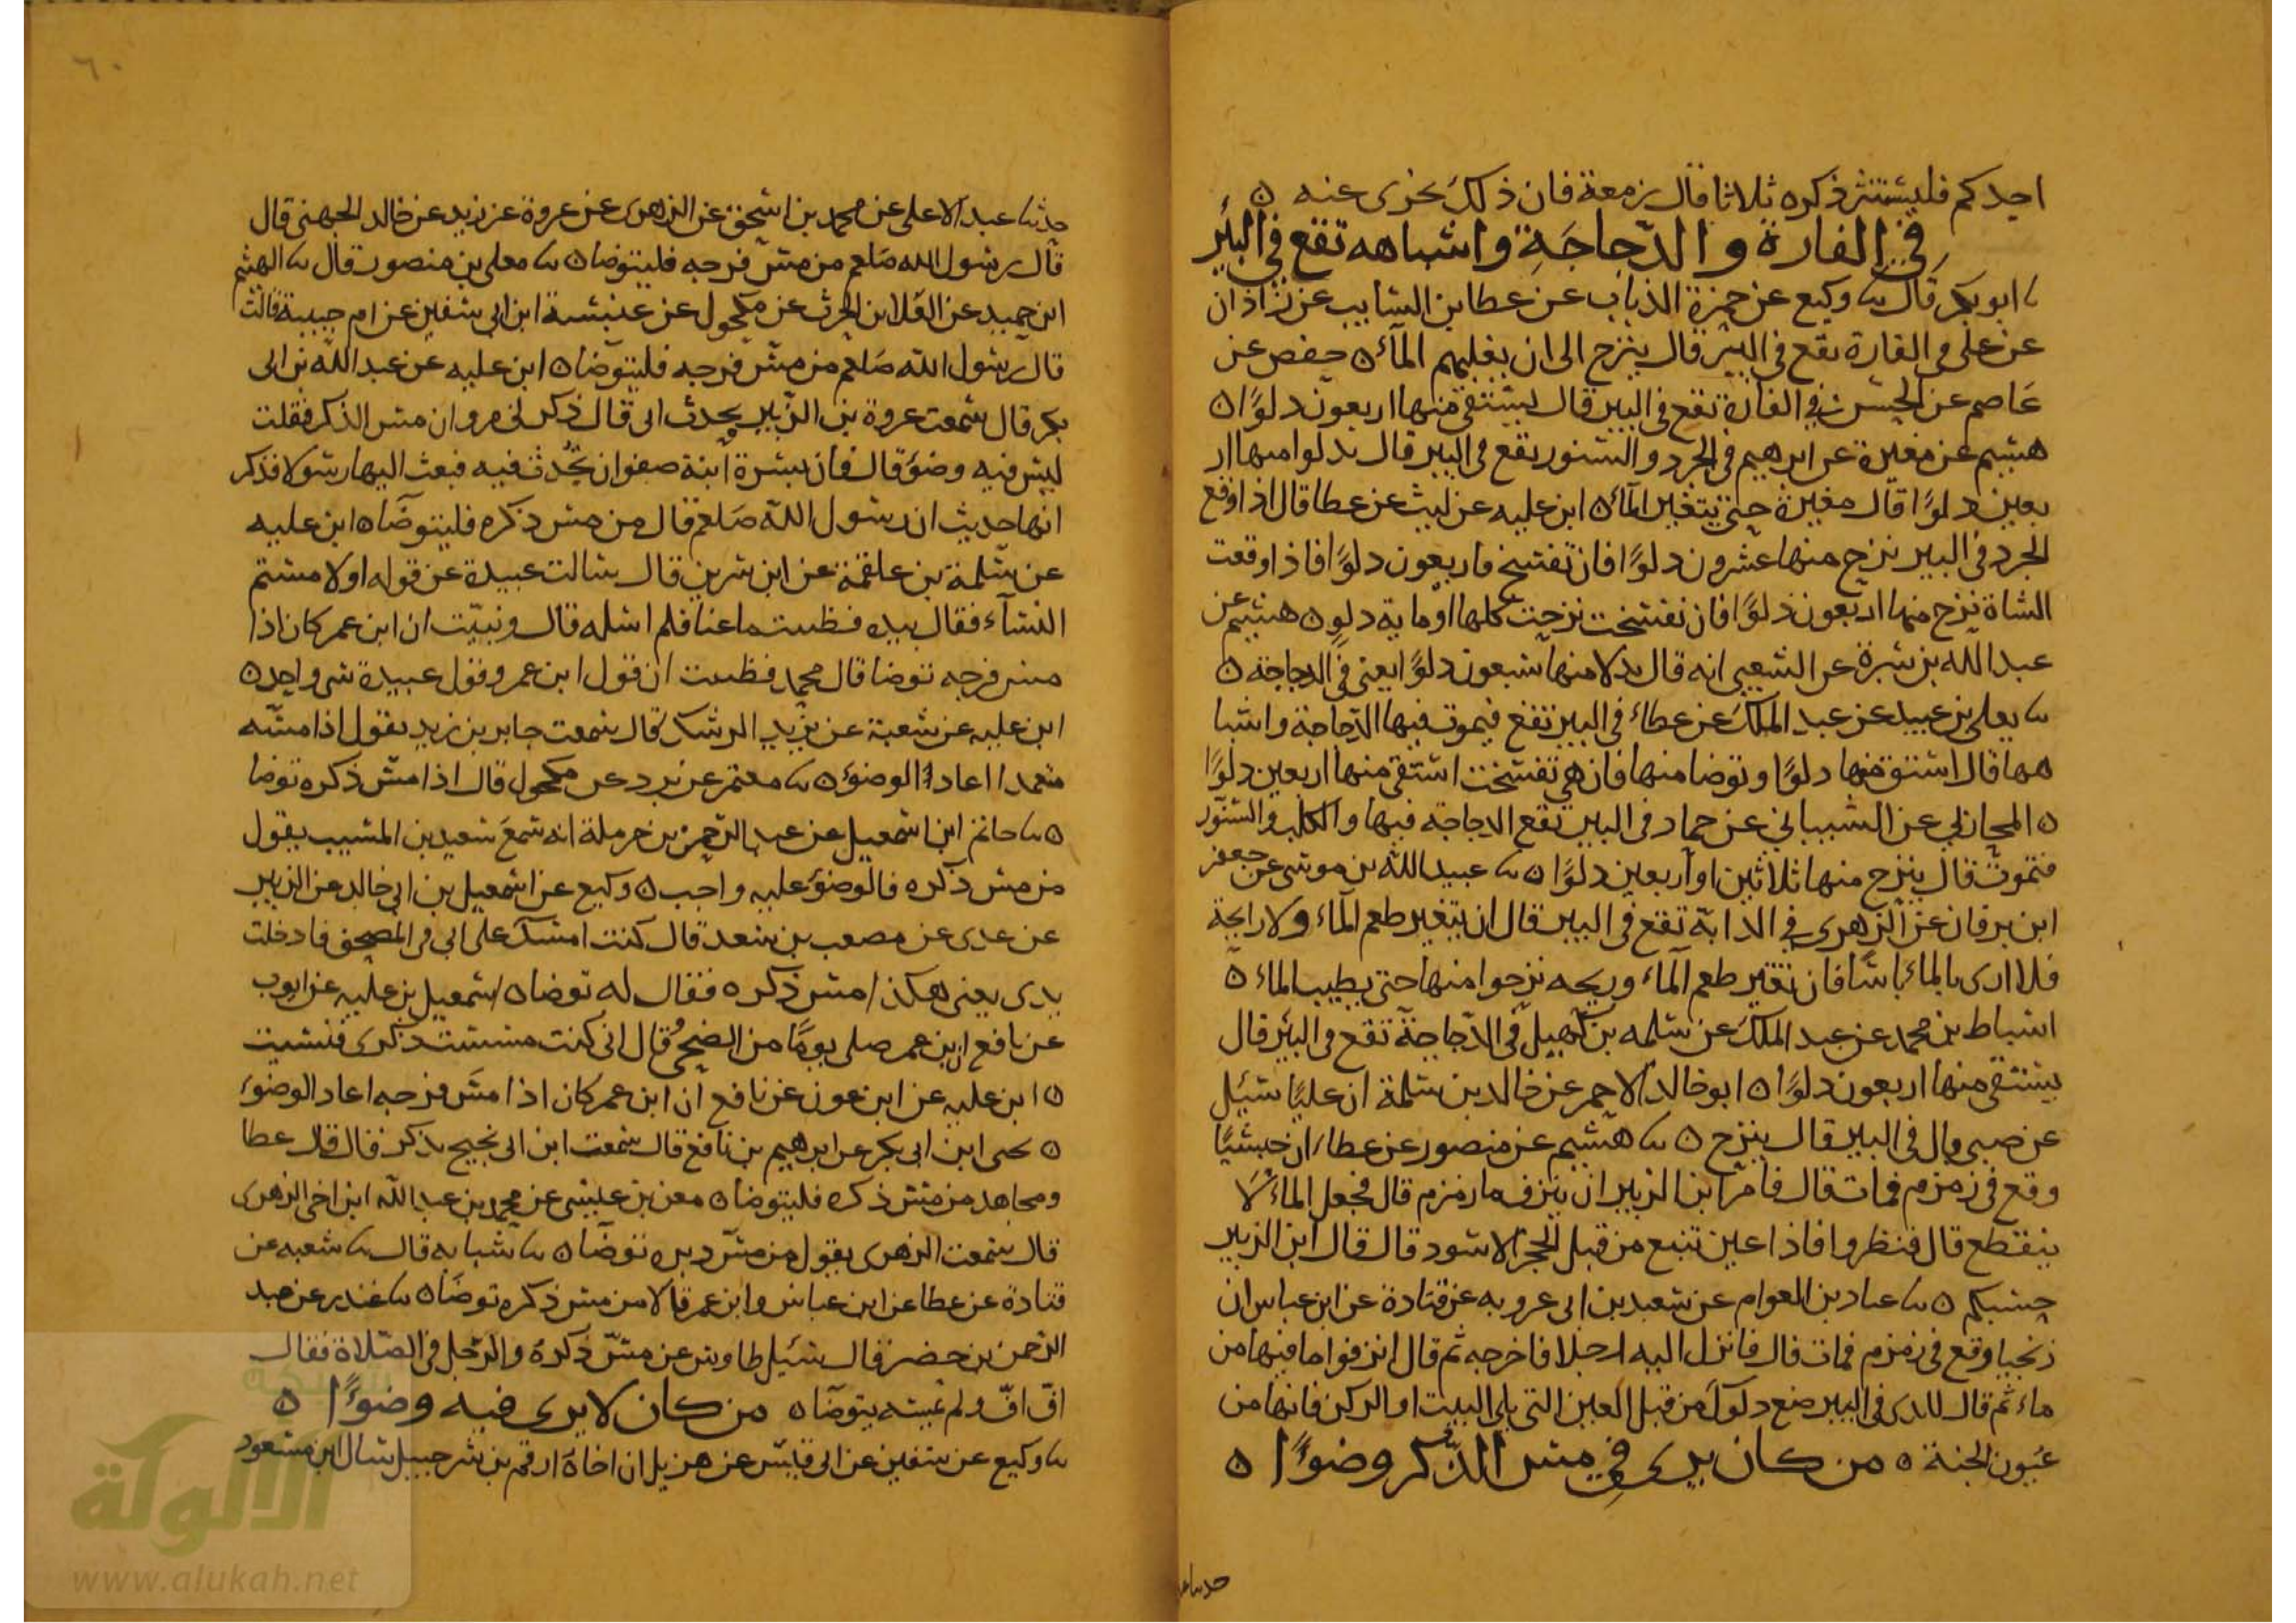 احدكم فليستنثر ذكره ثلاثا قال زمعة فان ذلك يجزى عنه ه
في الفارة والدّجاجَةِ واشباهه تقع في البئر
نا ابو بكر قال نا وكيع عن حمزة الزيات عن عطا بن السايب عن زاذان
عن على في الفارة تقع في البير قال ينزح الى ان يغلبهم المآء ه حفص عن
عاصم عن الحسن في الفارة تقع في البير قال يستقى منها اربعون دلوًا ه
هشيم عن مغيرة عن ابرهيم في الجرد والسنور يقع في البير قال يدلوا منها ار
بعين دلوًا قال مغيرة حتى يتغير المآء ه ابن عليه عن ليث عن عطا قال اذا وقع
الجرد في البير نزح منها عشرون دلوًا فان تفسخ فاربعون دلوًا فاذا وقعت
الشاة نزح منها اربعون دلوًا فان تفسخت نزحت كلها او ماية دلو ه هشيم عن
عبد الله بن سبرة عن الشعبى انه قال يدلا منها سبعون دلوًا يعنى في الدجاجة ه
نا يعلى بن عبيد عن عبد الملك عن عطاء في البير تقع فيموت فيها الدّجاجة واشبا
هها قال استق منها دلوًا وتوضا منها فان هي تفسخت استقى منها اربعين دلوًا
ه المحاربي عن الشيباني عن حماد في البير تقع الدجاجة فيها والكلب والسنّور
فتموت قال ينزح منها ثلاثين او اربعين دلوًا ه نا عبيد الله بن موسى عن جعفر
ابن برقان عن الزهرى في الدابة تقع في البير قال ان يتغير طعم المآء ولا رايحة
فلا ارى بالماء باسًا فان تغير طعم المآء وريحه نزحوا منها حتى يطيب الماء ه
اسباط بن محمد عن عبد الملك عن سلمه بن كهيل في الدّجاجة تقع في البئر قال
يستقى منها اربعون دلوًا ه ابو خالد الاحمر عن خالد بن سلمة ان عليًا سئيل
عن صبى بال في البير قال ينزح ه نا هشيم عن منصور عن عطاء ان حبشيًا
وقع في زمزم فمات قال فامر ابن الزبير ان ينزف ما زمزم قال فجعل الماء لا
ينقطع قال فنظروا فاذا عين تنبع من قبل الحجر الاسود قال قال ابن الزبير
حسبكم ه نا عباد بن العوام عن سعيد بن ابى عروبه عن قتادة عن ابن عباس ان
زنجيا وقع في زمزم فمات قال فانزل اليه رجلا فاخرجه ثم قال انزفوا ما فيها من
ماء ثم قال للذى في البير ضع دلوك من قبل العين التى يلى البيت او الركن فانها من
عيون الجنة ه من كان يرى في مس الذّكر وضوءًا ه
حدثنا عبد
٦٠
حدثنا عبد الاعلى عن محمد بن اسحق عن الزهرى عن عروة عن زيد عن خالد الجهنى قال
قال رسول الله صلعم من مسّ فرجه فليتوضا ه نا معلى بن منصور قال نا الهيثم
ابن حميد عن العلا بن الحرث عن مكحول عن عنبسة ابن ابى سفين عن ام حبيبة قالت
قال رسول الله صلعم من مسّ فرجه فليتوضا ه ابن عليه عن عبد الله بن ابى
بكر قال سمعت عروة بن الزبير يحدث ابى قال ذكر لى مروان مس الذكر فقلت
ليس فيه وضوء قال فان بسرة ابنة صفوان تُحدث فيه فبعث اليها رسولا فذكر
انها حديث ان رسول الله صلعم قال من مس ذكره فليتوضا ه ابن عليه
عن سلمة بن علقمة عن ابن سرين قال سالت عبيدة عن قوله او لا مستم
النسآء فقال بيده فظننت ما عنا فلم اسله قال ونبيّت ان ابن عمر كان اذا
مس فرجه توضا قال محمد فظننت ان قول ابن عمر وقول عبيدة شى واحد ه
ابن عليه عن شعبة عن يزيد الرشك قال سمعت جابر بن زيد يقول اذا مسّه
متعمدا اعاد الوضوء ه نا معتمر عن برد عن مكحول قال اذا مس ذكره توضا
ه نا حاتم ابن اسمعيل عن عبد الرّحمن بن حرملة انه سمع سعيد بن المسيب يقول
من مس ذكره فالوضوء عليه واجب ه وكيع عن اسمعيل بن ابى خالد عن الزبير
عن عدى عن مصعب بن سعد قال كنت امسك على ابى في المصحف فادخلت
يدى يعنى هكذا مس ذكره فقال له توضا ه اسمعيل بن عليه عن ايوب
عن نافع ان ابن عمر صلى يومًا من الضحى قال انى كنت مسست ذكرى فنسيت
ه ابن عليه عن ابن عون عن نافع ان ابن عمر كان اذا مسّ فرجه اعاد الوضوء
ه يحيى ابن ابى بكر عن ابرهيم بن نافع قال سمعت ابن ابى نجيح يذكر قال قال عطا
ومجاهد من مس ذكره فليتوضا ه معن بن عيسى عن محمد بن عبد الله ابن اخى الزهرى
قال سمعت الزهرى يقول من مسّ دبره توضا ه نا شبابه قال نا شعبه عن
قتادة عن عطا عن ابن عباس وابن عمر قالا من مس ذكره توضا ه نا غندر عن عبد
الرحمن بن خضر قال سئيل طاوس عن مسّ ذكره والرجل في الصّلاة فقال
افّ افّ ولم يتوضا ه من كان لا يرى فيه وضوءًا ه
نا وكيع عن سفين عن ابى قيس عن هزيل ان اخاه ارقم بن شرحبيل سال ابن مسعود
شبكة
الألوكة
www.alukah.net